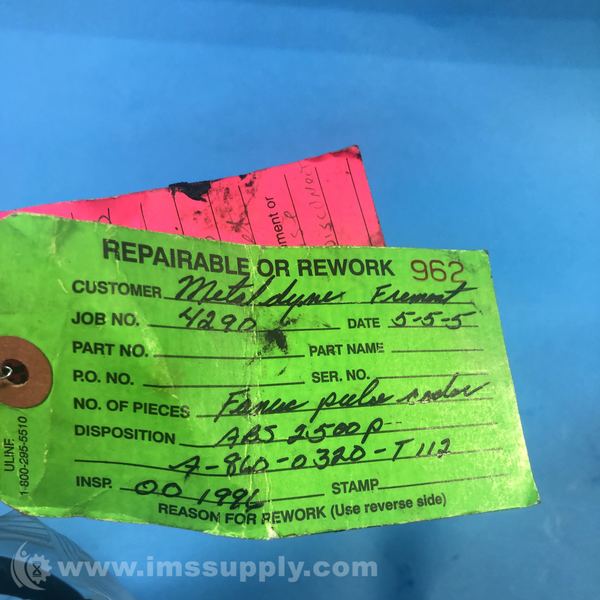 ment or
DISCONNECT
REPAIRABLE OR REWORK 962
CUSTOMER Metaldyne Fremont
JOB NO. 4290 DATE 5-5-5
PART NO. PART NAME
P.O. NO. SER. NO.
NO. OF PIECES Fanuc pulse coder
DISPOSITION ABS 2500P
A-860-0320-T112
INSP. 001996 STAMP
REASON FOR REWORK (Use reverse side)
ULINE
1-800-295-5510
www.imssupply.com